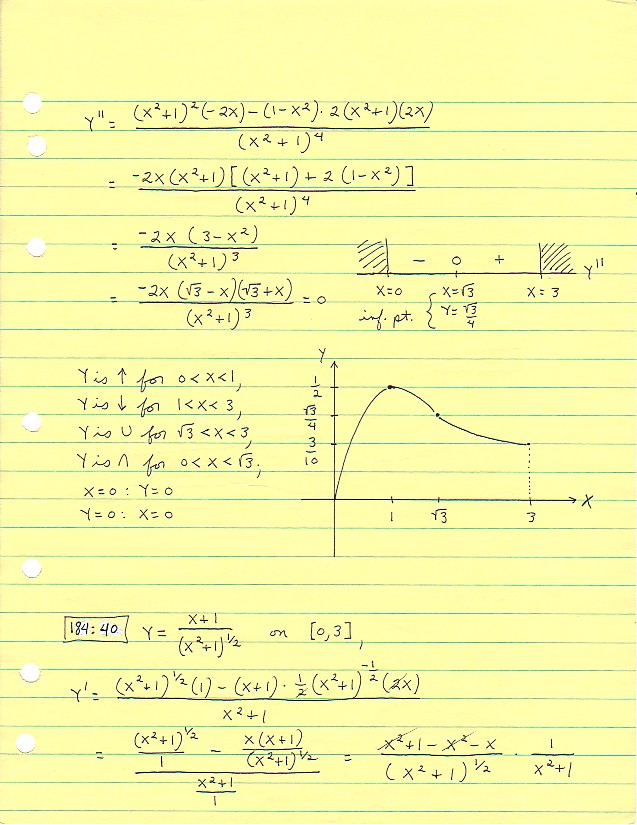 Y'' = ((x²+1)²(-2x) - (1-x²)·2(x²+1)(2x)) / (x²+1)⁴
= (-2x(x²+1)[(x²+1)+2(1-x²)]) / (x²+1)⁴
= (-2x(3-x²)) / (x²+1)³
= (-2x(√3-x)(√3+x)) / (x²+1)³ = 0
- 0 + Y''
x=0 x=√3 x=3
inf. pt. { x=√3 Y=√3/4
Y is ↑ for 0<x<1,
Y is ↓ for 1<x<3,
Y is ∪ for √3<x<3,
Y is ∩ for 0<x<√3;
x=0: Y=0
Y=0: x=0
Y
1/2
√3/4
3/10
1 √3 3 X
184:40 Y = (x+1)/(x²+1)^(1/2) on [0,3],
Y' = ((x²+1)^(1/2)(1) - (x+1)·1/2(x²+1)^(-1/2)(2x)) / (x²+1)
= ((x²+1)^(1/2)/1 - x(x+1)/(x²+1)^(1/2)) / ((x²+1)/1) = (x²+1-x²-x)/(x²+1)^(1/2) · 1/(x²+1)